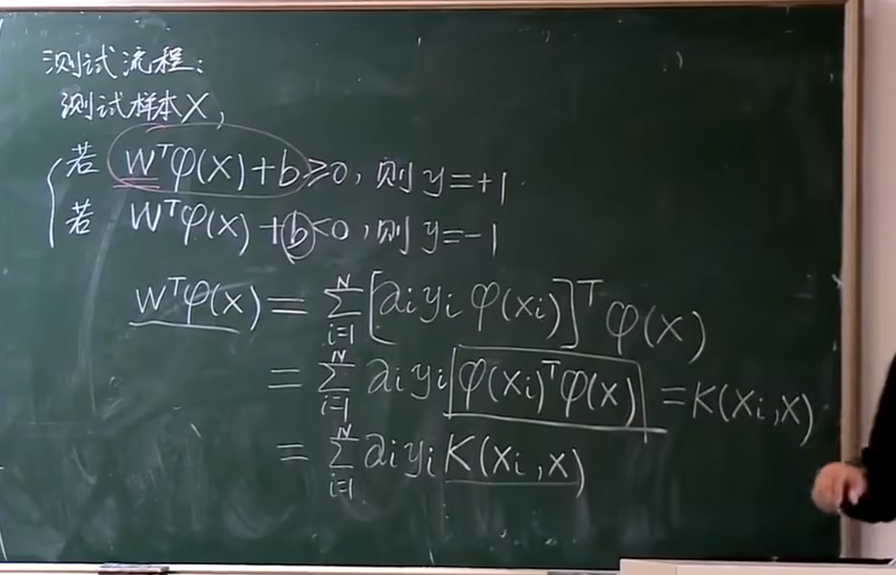 测试流程：
测试样本X，
若 WᵀΦ(X)+b≥0，则 y=+1
若 WᵀΦ(X)+b<0，则 y=-1
WᵀΦ(X) = ∑_{i=1}^{N} [αᵢyᵢ φ(Xᵢ)]ᵀ φ(X)
= ∑_{i=1}^{N} αᵢyᵢ φ(Xᵢ)ᵀφ(X) = K(Xᵢ,X)
= ∑_{i=1}^{N} αᵢyᵢ K(Xᵢ,X)